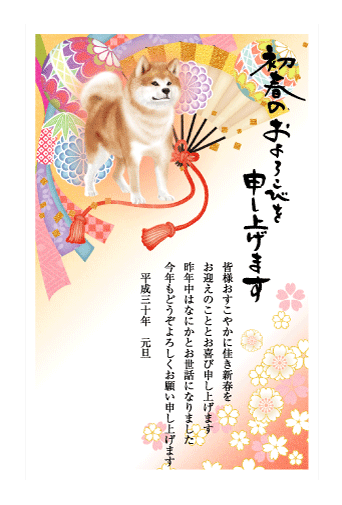 初春の
およろこびを
申し上げます
皆様おすこやかに佳き新春を
お迎えのこととお喜び申し上げます
昨年中はなにかとお世話になりました
今年もどうぞよろしくお願い申し上げます
平成三十年　元旦